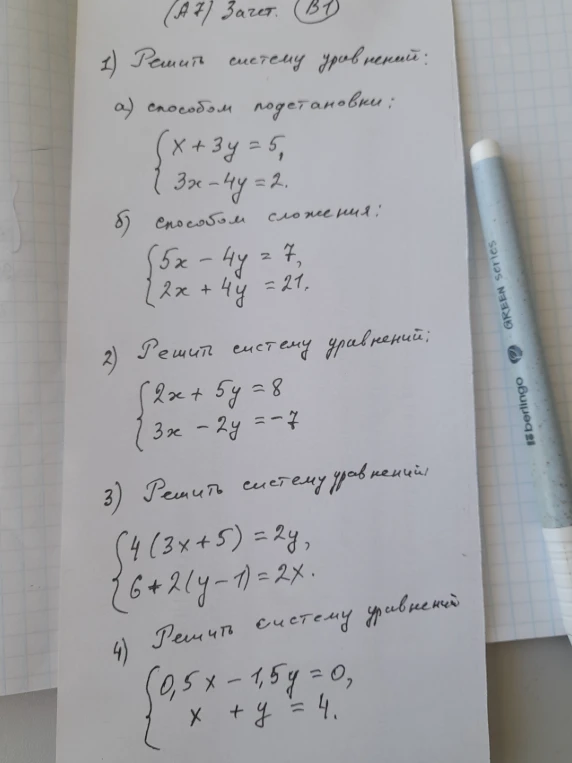 (А7) Зачет. (В1)
1) Решить систему уравнений:
а) способом подстановки:
x + 3y = 5,
3x - 4y = 2.
б) способом сложения:
5x - 4y = 7,
2x + 4y = 21.
2) Решить систему уравнений:
2x + 5y = 8
3x - 2y = -7
3) Решить систему уравнений
4(3x + 5) = 2y,
6 + 2(y - 1) = 2x.
4) Решить систему уравнений
0,5x - 1,5y = 0,
x + y = 4.
berlingo GREEN series